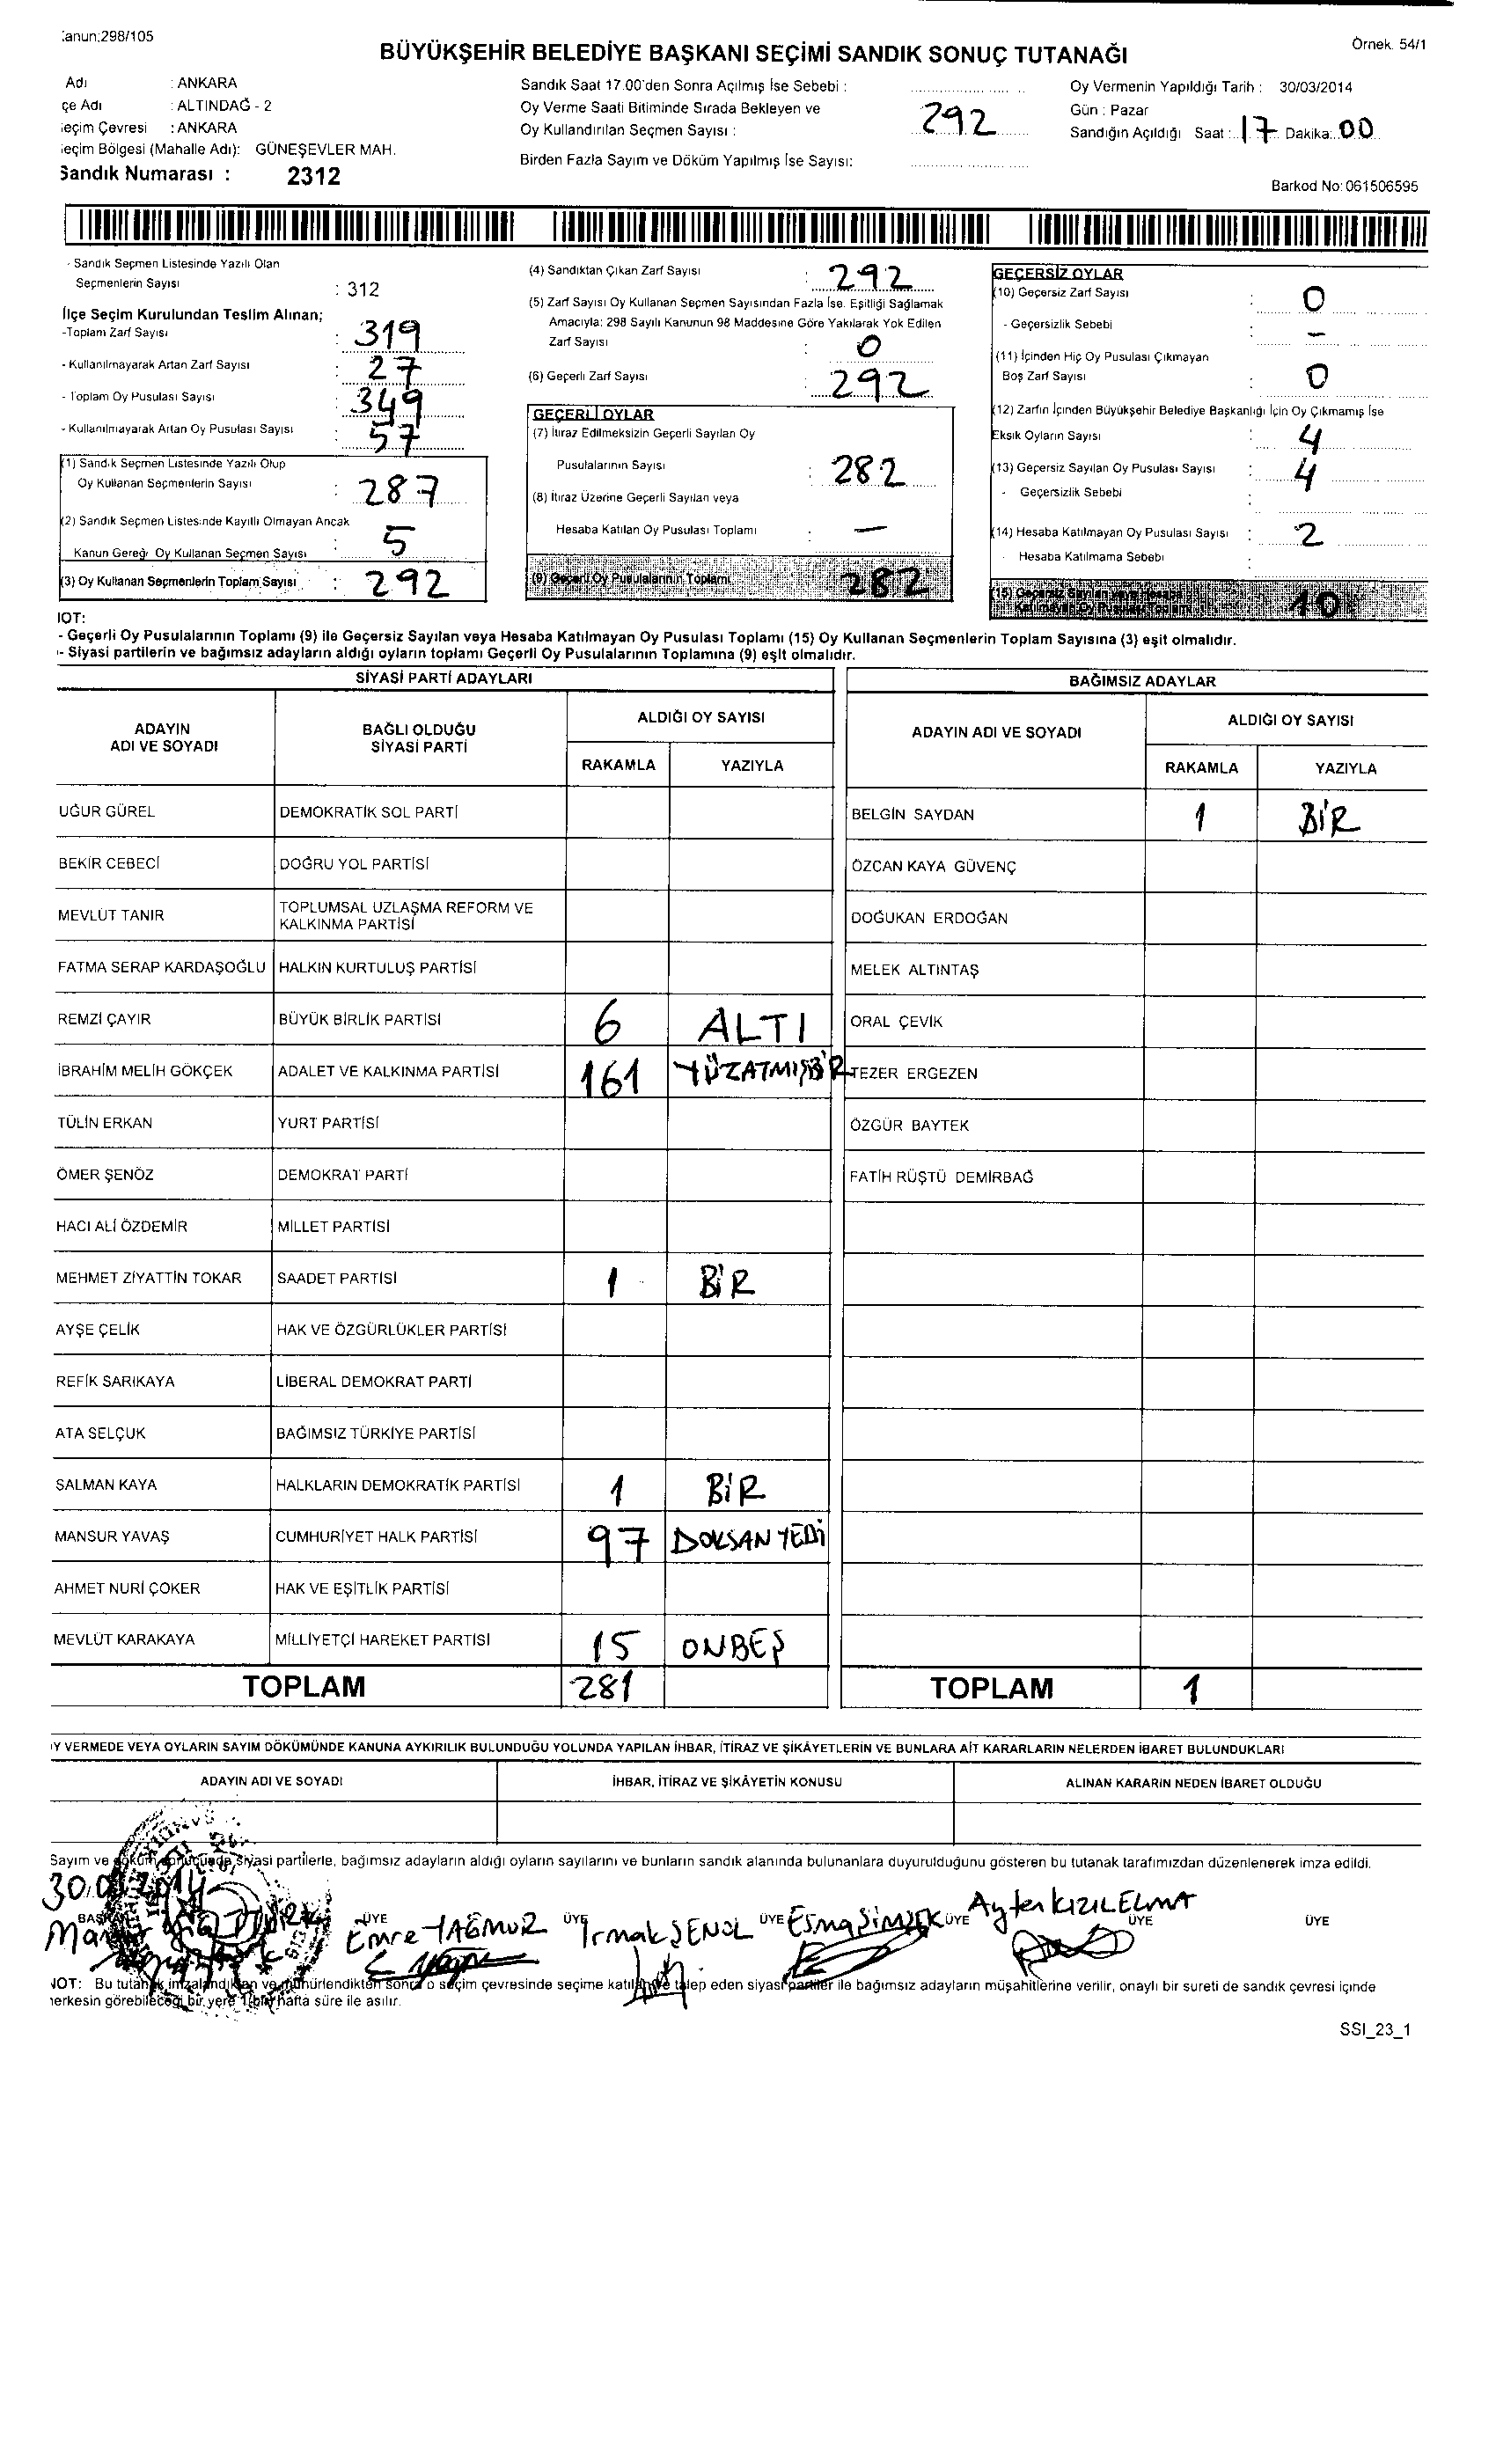 :anun;298/105
Örnek. 54/1
BÜYÜKŞEHİR BELEDİYE BAŞKANI SEÇİMİ SANDIK SONUÇ TUTANAĞI
Adı : ANKARA
çe Adı : ALTINDAĞ - 2
eçim Çevresi : ANKARA
eçim Bölgesi (Mahalle Adı): GÜNEŞEVLER MAH.
Sandık Numarası : 2312
Sandık Saat 17.00'den Sonra Açılmış İse Sebebi :
Oy Verme Saati Bitiminde Sırada Bekleyen ve
Oy Kullandırılan Seçmen Sayısı : 292
Birden Fazla Sayım ve Döküm Yapılmış İse Sayısı:
Oy Vermenin Yapıldığı Tarih : 30/03/2014
Gün : Pazar
Sandığın Açıldığı Saat : 17 Dakika: 00
Barkod No: 061506595
- Sandık Seçmen Listesinde Yazılı Olan
Seçmenlerin Sayısı : 312
İlçe Seçim Kurulundan Teslim Alınan;
-Toplam Zarf Sayısı : 319
- Kullanılmayarak Artan Zarf Sayısı : 27
- Toplam Oy Pusulası Sayısı : 349
- Kullanılmayarak Artan Oy Pusulası Sayısı : 57
(1) Sandık Seçmen Listesinde Yazılı Olup
Oy Kullanan Seçmenlerin Sayısı : 287
(2) Sandık Seçmen Listesinde Kayıtlı Olmayan Ancak
Kanun Gereği Oy Kullanan Seçmen Sayısı : 5
(3) Oy Kullanan Seçmenlerin Toplam Sayısı : 292
(4) Sandıktan Çıkan Zarf Sayısı : 292
(5) Zarf Sayısı Oy Kullanan Seçmen Sayısından Fazla İse. Eşitliği Sağlamak
Amacıyla: 298 Sayılı Kanunun 98 Maddesine Göre Yakılarak Yok Edilen
Zarf Sayısı : 0
(6) Geçerli Zarf Sayısı : 292
GEÇERLİ OYLAR
(7) İtiraz Edilmeksizin Geçerli Sayılan Oy
Pusulalarının Sayısı : 282
(8) İtiraz Üzerine Geçerli Sayılan veya
Hesaba Katılan Oy Pusulası Toplamı : —
(9) Geçerli Oy Pusulalarının Toplamı 282
GEÇERSİZ OYLAR
(10) Geçersiz Zarf Sayısı : 0
- Geçersizlik Sebebi : -
(11) İçinden Hiç Oy Pusulası Çıkmayan
Boş Zarf Sayısı : 0
(12) Zarfın İçinden Büyükşehir Belediye Başkanlığı İçin Oy Çıkmamış İse
Eksik Oyların Sayısı : 4
(13) Geçersiz Sayılan Oy Pusulası Sayısı : 4
- Geçersizlik Sebebi :
(14) Hesaba Katılmayan Oy Pusulası Sayısı : 2
Hesaba Katılmama Sebebi :
(15) Geçersiz Sayılan veya Hesaba
Katılmayan Oy Pusulası Toplamı 10
NOT:
- Geçerli Oy Pusulalarının Toplamı (9) ile Geçersiz Sayılan veya Hesaba Katılmayan Oy Pusulası Toplamı (15) Oy Kullanan Seçmenlerin Toplam Sayısına (3) eşit olmalıdır.
- Siyasi partilerin ve bağımsız adayların aldığı oyların toplamı Geçerli Oy Pusulalarının Toplamına (9) eşit olmalıdır.
SİYASİ PARTİ ADAYLARI
ADAYIN ADI VE SOYADI BAĞLI OLDUĞU SİYASİ PARTİ ALDIĞI OY SAYISI
RAKAMLA YAZIYLA
UĞUR GÜREL DEMOKRATİK SOL PARTİ
BEKİR CEBECİ DOĞRU YOL PARTİSİ
MEVLÜT TANIR TOPLUMSAL UZLAŞMA REFORM VE KALKINMA PARTİSİ
FATMA SERAP KARDAŞOĞLU HALKIN KURTULUŞ PARTİSİ
REMZİ ÇAYIR BÜYÜK BİRLİK PARTİSİ 6 ALTI
İBRAHİM MELİH GÖKÇEK ADALET VE KALKINMA PARTİSİ 161 YÜZATMIŞBİR
TÜLİN ERKAN YURT PARTİSİ
ÖMER ŞENÖZ DEMOKRAT PARTİ
HACI ALİ ÖZDEMİR MİLLET PARTİSİ
MEHMET ZİYATTİN TOKAR SAADET PARTİSİ 1 BİR
AYŞE ÇELİK HAK VE ÖZGÜRLÜKLER PARTİSİ
REFİK SARIKAYA LİBERAL DEMOKRAT PARTİ
ATA SELÇUK BAĞIMSIZ TÜRKİYE PARTİSİ
SALMAN KAYA HALKLARIN DEMOKRATİK PARTİSİ 1 BİR
MANSUR YAVAŞ CUMHURİYET HALK PARTİSİ 97 DOKSAN YEDİ
AHMET NURİ ÇOKER HAK VE EŞİTLİK PARTİSİ
MEVLÜT KARAKAYA MİLLİYETÇİ HAREKET PARTİSİ 15 ONBEŞ
TOPLAM 281
BAĞIMSIZ ADAYLAR
ADAYIN ADI VE SOYADI ALDIĞI OY SAYISI
RAKAMLA YAZIYLA
BELGİN SAYDAN 1 BİR
ÖZCAN KAYA GÜVENÇ
DOĞUKAN ERDOĞAN
MELEK ALTINTAŞ
ORAL ÇEVİK
TEZER ERGEZEN
ÖZGÜR BAYTEK
FATİH RÜŞTÜ DEMİRBAĞ
TOPLAM 1
Y VERMEDE VEYA OYLARIN SAYIM DÖKÜMÜNDE KANUNA AYKIRILIK BULUNDUĞU YOLUNDA YAPILAN İHBAR, İTİRAZ VE ŞİKÂYETLERİN VE BUNLARA AİT KARARLARIN NELERDEN İBARET BULUNDUKLARI
ADAYIN ADI VE SOYADI İHBAR, İTİRAZ VE ŞİKÂYETİN KONUSU ALINAN KARARIN NEDEN İBARET OLDUĞU
Sayım ve döküm sonucunda, siyasi partilerle, bağımsız adayların aldığı oyların sayılarını ve bunların sandık alanında bulunanlara duyurulduğunu gösteren bu tutanak tarafımızdan düzenlenerek imza edildi.
ÜYE ÜYE ÜYE ÜYE ÜYE ÜYE
Emre YAĞMUR Irmak ŞENOL Esma ŞİMŞEK Ayten KIZILELMA
NOT: Bu tutanak imzalandıktan ve mühürlendikten sonra o seçim çevresinde seçime katılan ve talep eden siyasi partiler ile bağımsız adayların müşahitlerine verilir, onaylı bir sureti de sandık çevresi içinde
herkesin görebileceği bir yere 1(bir) hafta süre ile asılır.
SSI_23_1